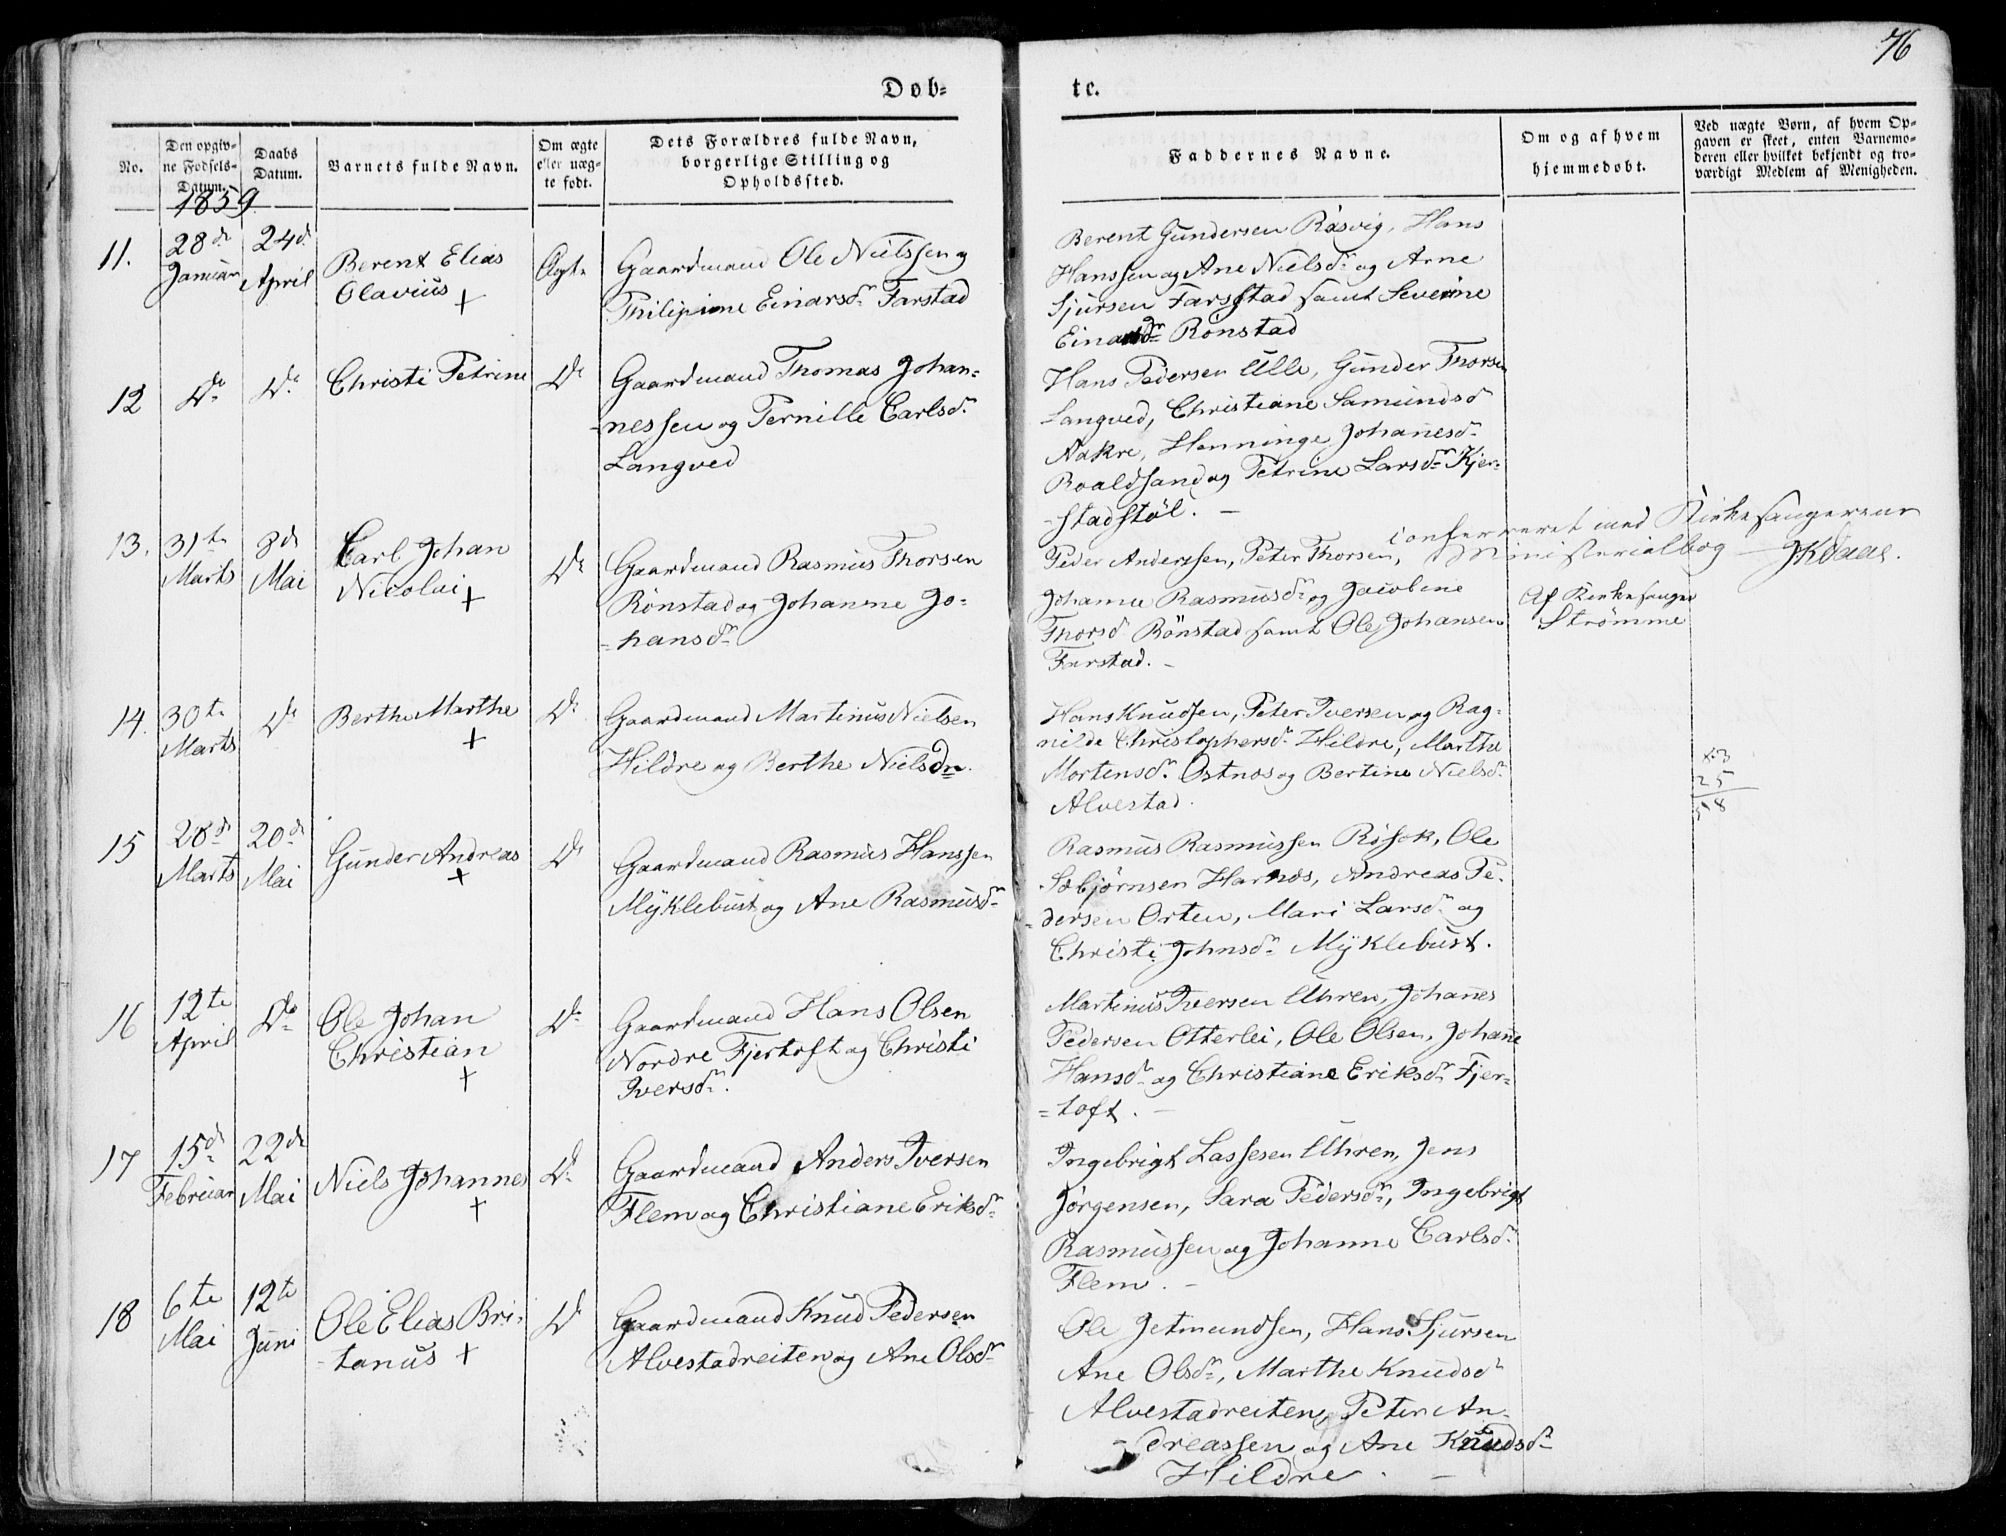 76
Døb-
te.
No.
Den opgiv-
ne Fødsels-
Datum.
Daabs
Datum.
Barnets fulde Navn.
Om ægte
eller uæg-
te født.
Dets Forældres fulde Navn,
borgerlige Stilling og
Opholdssted.
Faddernes Navne.
Om og af hvem
hjemmedøbt.
Ved uægte Børn, af hvem Op-
gaven er skeet, enten Barnemo-
deren eller hvilket bekjendt og tro-
værdigt Medlem af Menigheden.
1859
11.
28de
Januar
24de
April
Berent Elias
Olavius +
Ægte
Gaardmand Ole Nielssen og
Philipine Einarsdr Farstad
Berent Gundersen Røsvig, Hans
Hanssen og Ane Nielsdr og Arne
Sjursen Farsstad samt Severine
Einarsdr Rønstad
12
Do
Do
Christi Petrine
Do
Gaardmand Thomas Johan-
-nessen og Pernille Carlsdr
Langved
Hans Pedersen Ulle, Gunder Thorsen
Langved, Christiane Samundsd
Aakre, Henninge Johanesdr
Roaldsand og Petrine Larsdr Kjer-
-stadstøl. -
13.
31te
Marts
8de
Mai
Carl Johan
Nicolai +
Do
Gaardmand Rasmus Thorsen
Rønstad og Johanne Jo-
=hansdr
conferreret med Kirkesangerens
Ministerialbog - JKDaae.
Peder Anderssen, Peter Thorsen,
Johanne Rasmusdr og Jacobine
Thorsd Rönstad samt Ole Johansen
Farstad. -
Af Kirkesanger
Strømme
14.
30te
Marts
Do
Berthe Marthe
+
Do
Gaardmand Martinus Nielsen
Hildre og Berthe Nielsdr.
Hans Knudsen, Peter Iversen og Rag-
nilde Christophersdr Hildre, Marthe
Mortensdr Ostnes og Bertine Nielsdr
Alvestad.
25
15
28de
Marts
20de
Mai
Gunder Andreas
+
Do
Gaardmand Rasmus Hanssen
Mÿklebust og Ane Rasmusdr
Rasmus Rasmussen Røsok, Ole
Sæbjørnsen Harnæs, Andreas Pe-
=dersen Orten, Mari Larsdr og
Christi Johnsdr Mÿklebust.
16
12te
April
Do
Ole Johan
Christian
+
Do
Gaardmand Hans Olsen
Nordre Fjertoft og Christi
Iversdr.
Martinus Iversen Uhren, Johanes
Pedersen Otterlei, Ole Olsen, Johane
Hansdr og Christiane Eriksdr Fjer-
=toft. -
17
15de
Februar
22de
Mai
Niels Johannes
+
Do
Gaardmand Anders Iversen
Flem og Christiane Eriksdr
Ingebrigt Lassesen Uhren, Jens
Jørgensen, Sara Pedersdr, Ingebrigt
Rasmussen og Johanne Carlsdr
Flem. -
18
6te
Mai
12te
Juni
Ole Elias Bri-
-tanus +
Do
Gaardmand Knud Pedersen
Alvestadreiten og Ane Olsdr
Ole Jetmundsen, Hans Sjursen
Ane Olsdr, Marthe Knudsdr
Alvestadreiten, Peter An-
-dreassen og Ane Knudsdr
Hildre. -